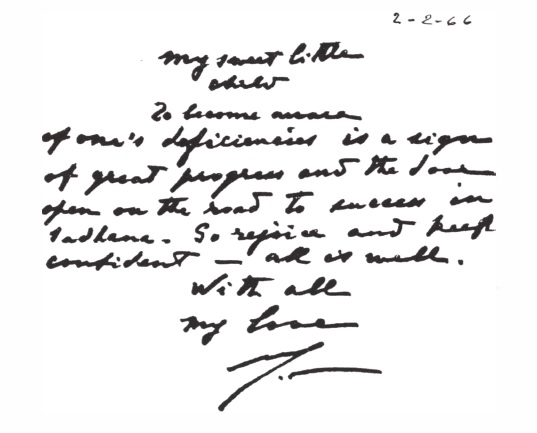 2-2-66
My sweet little
child
To become aware
of one's deficiencies is a sign
of great progress and the door
open on the road to success in
sadhana. So rejoice and keep
confident — all is well.
With all
my love